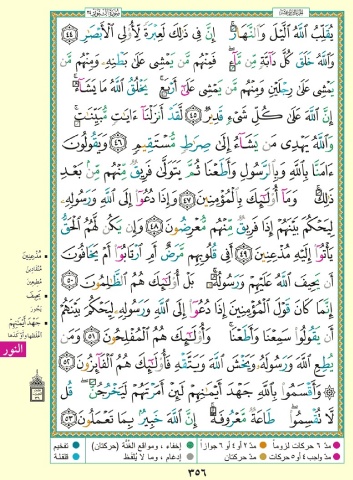 يُقَلِّبُ ٱللَّهُ ٱلَّيْلَ وَٱلنَّهَارَ ۚ إِنَّ فِى ذَٰلِكَ لَعِبْرَةً لِّأُو۟لِى ٱلْأَبْصَٰرِ ٤٤
وَٱللَّهُ خَلَقَ كُلَّ دَآبَّةٍ مِّن مَّآءٍ ۖ فَمِنْهُم مَّن يَمْشِى عَلَىٰ بَطْنِهِۦ وَمِنْهُم مَّن
يَمْشِى عَلَىٰ رِجْلَيْنِ وَمِنْهُم مَّن يَمْشِى عَلَىٰٓ أَرْبَعٍ ۚ يَخْلُقُ ٱللَّهُ مَا يَشَآءُ ۚ
إِنَّ ٱللَّهَ عَلَىٰ كُلِّ شَىْءٍ قَدِيرٌ ٤٥ لَّقَدْ أَنزَلْنَآ ءَايَٰتٍ مُّبَيِّنَٰتٍ ۚ
وَٱللَّهُ يَهْدِى مَن يَشَآءُ إِلَىٰ صِرَٰطٍ مُّسْتَقِيمٍ ٤٦ وَيَقُولُونَ
ءَامَنَّا بِٱللَّهِ وَبِٱلرَّسُولِ وَأَطَعْنَا ثُمَّ يَتَوَلَّىٰ فَرِيقٌ مِّنْهُم مِّنۢ بَعْدِ
ذَٰلِكَ ۚ وَمَآ أُو۟لَٰٓئِكَ بِٱلْمُؤْمِنِينَ ٤٧ وَإِذَا دُعُوٓا۟ إِلَى ٱللَّهِ وَرَسُولِهِۦ
لِيَحْكُمَ بَيْنَهُمْ إِذَا فَرِيقٌ مِّنْهُم مُّعْرِضُونَ ٤٨ وَإِن يَكُن لَّهُمُ ٱلْحَقُّ
يَأْتُوٓا۟ إِلَيْهِ مُذْعِنِينَ ٤٩ أَفِى قُلُوبِهِم مَّرَضٌ أَمِ ٱرْتَابُوٓا۟ أَمْ يَخَافُونَ
أَن يَحِيفَ ٱللَّهُ عَلَيْهِمْ وَرَسُولُهُۥ ۚ بَلْ أُو۟لَٰٓئِكَ هُمُ ٱلظَّٰلِمُونَ ٥٠
إِنَّمَا كَانَ قَوْلَ ٱلْمُؤْمِنِينَ إِذَا دُعُوٓا۟ إِلَى ٱللَّهِ وَرَسُولِهِۦ لِيَحْكُمَ بَيْنَهُمْ
أَن يَقُولُوا۟ سَمِعْنَا وَأَطَعْنَا ۚ وَأُو۟لَٰٓئِكَ هُمُ ٱلْمُفْلِحُونَ ٥١ وَمَن
يُطِعِ ٱللَّهَ وَرَسُولَهُۥ وَيَخْشَ ٱللَّهَ وَيَتَّقْهِ فَأُو۟لَٰٓئِكَ هُمُ ٱلْفَآئِزُونَ ٥٢
۞ وَأَقْسَمُوا۟ بِٱللَّهِ جَهْدَ أَيْمَٰنِهِمْ لَئِنْ أَمَرْتَهُمْ لَيَخْرُجُنَّ ۖ قُل
لَّا تُقْسِمُوا۟ ۖ طَاعَةٌ مَّعْرُوفَةٌ ۚ إِنَّ ٱللَّهَ خَبِيرٌۢ بِمَا تَعْمَلُونَ ٥٣
مُذْعِنِينَ
مُنْقَادِينَ
مُطِيعِينَ
يَحِيفَ
يَجُورَ
جَهْدَ أَيْمَٰنِهِمْ
النور
مدّ ٦ حركات لزوماً مدّ ٢ أو ٤ أو ٦ جوازاً إخفاء، ومواقع الغُنَّة (حركتان) تفخيم
مدّ واجب ٤ أو ٥ حركات مدّ حركتان إدغام، وما لا يُلفَظ قلقلة
٣٥٦